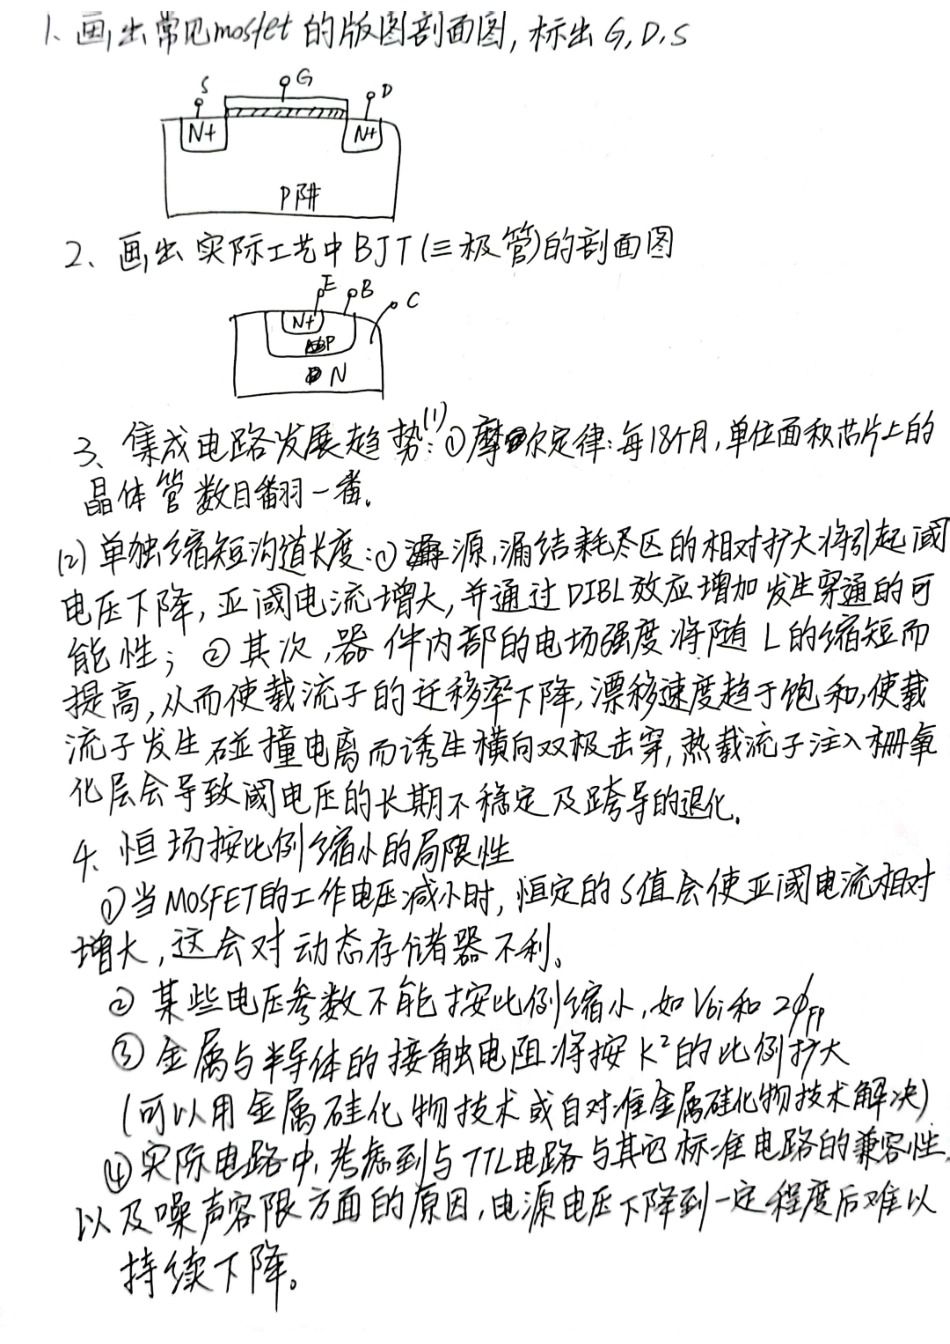 1、画出常见mosfet的版图剖面图,标出G,D,S
S G D
N+ N+
P阱
2、画出实际工艺中BJT(三极管)的剖面图
E B C
N+
P
N
3、集成电路发展趋势:(1)①摩尔定律:每18个月,单位面积芯片上的
晶体管数目翻一番。
(2)单独缩短沟道长度:①源,漏结耗尽区的相对扩大将引起阈
电压下降,亚阈电流增大,并通过DIBL效应增加发生穿通的可
能性;②其次,器件内部的电场强度将随L的缩短而
提高,从而使载流子的迁移率下降,漂移速度趋于饱和,使载
流子发生碰撞电离而诱生横向双极击穿,热载流子注入栅氧
化层会导致阈电压的长期不稳定及跨导的退化。
4、恒场按比例缩小的局限性
①当MOSFET的工作电压减小时,恒定的S值会使亚阈电流相对
增大,这会对动态存储器不利。
②某些电压参数不能按比例缩小,如Vbi和2φFP
③金属与半导体的接触电阻将按K²的比例扩大
(可以用金属硅化物技术或自对准金属硅化物技术解决)
④实际电路中,考虑到与TTL电路与其它标准电路的兼容性,
以及噪声容限方面的原因,电源电压下降到一定程度后难以
持续下降。